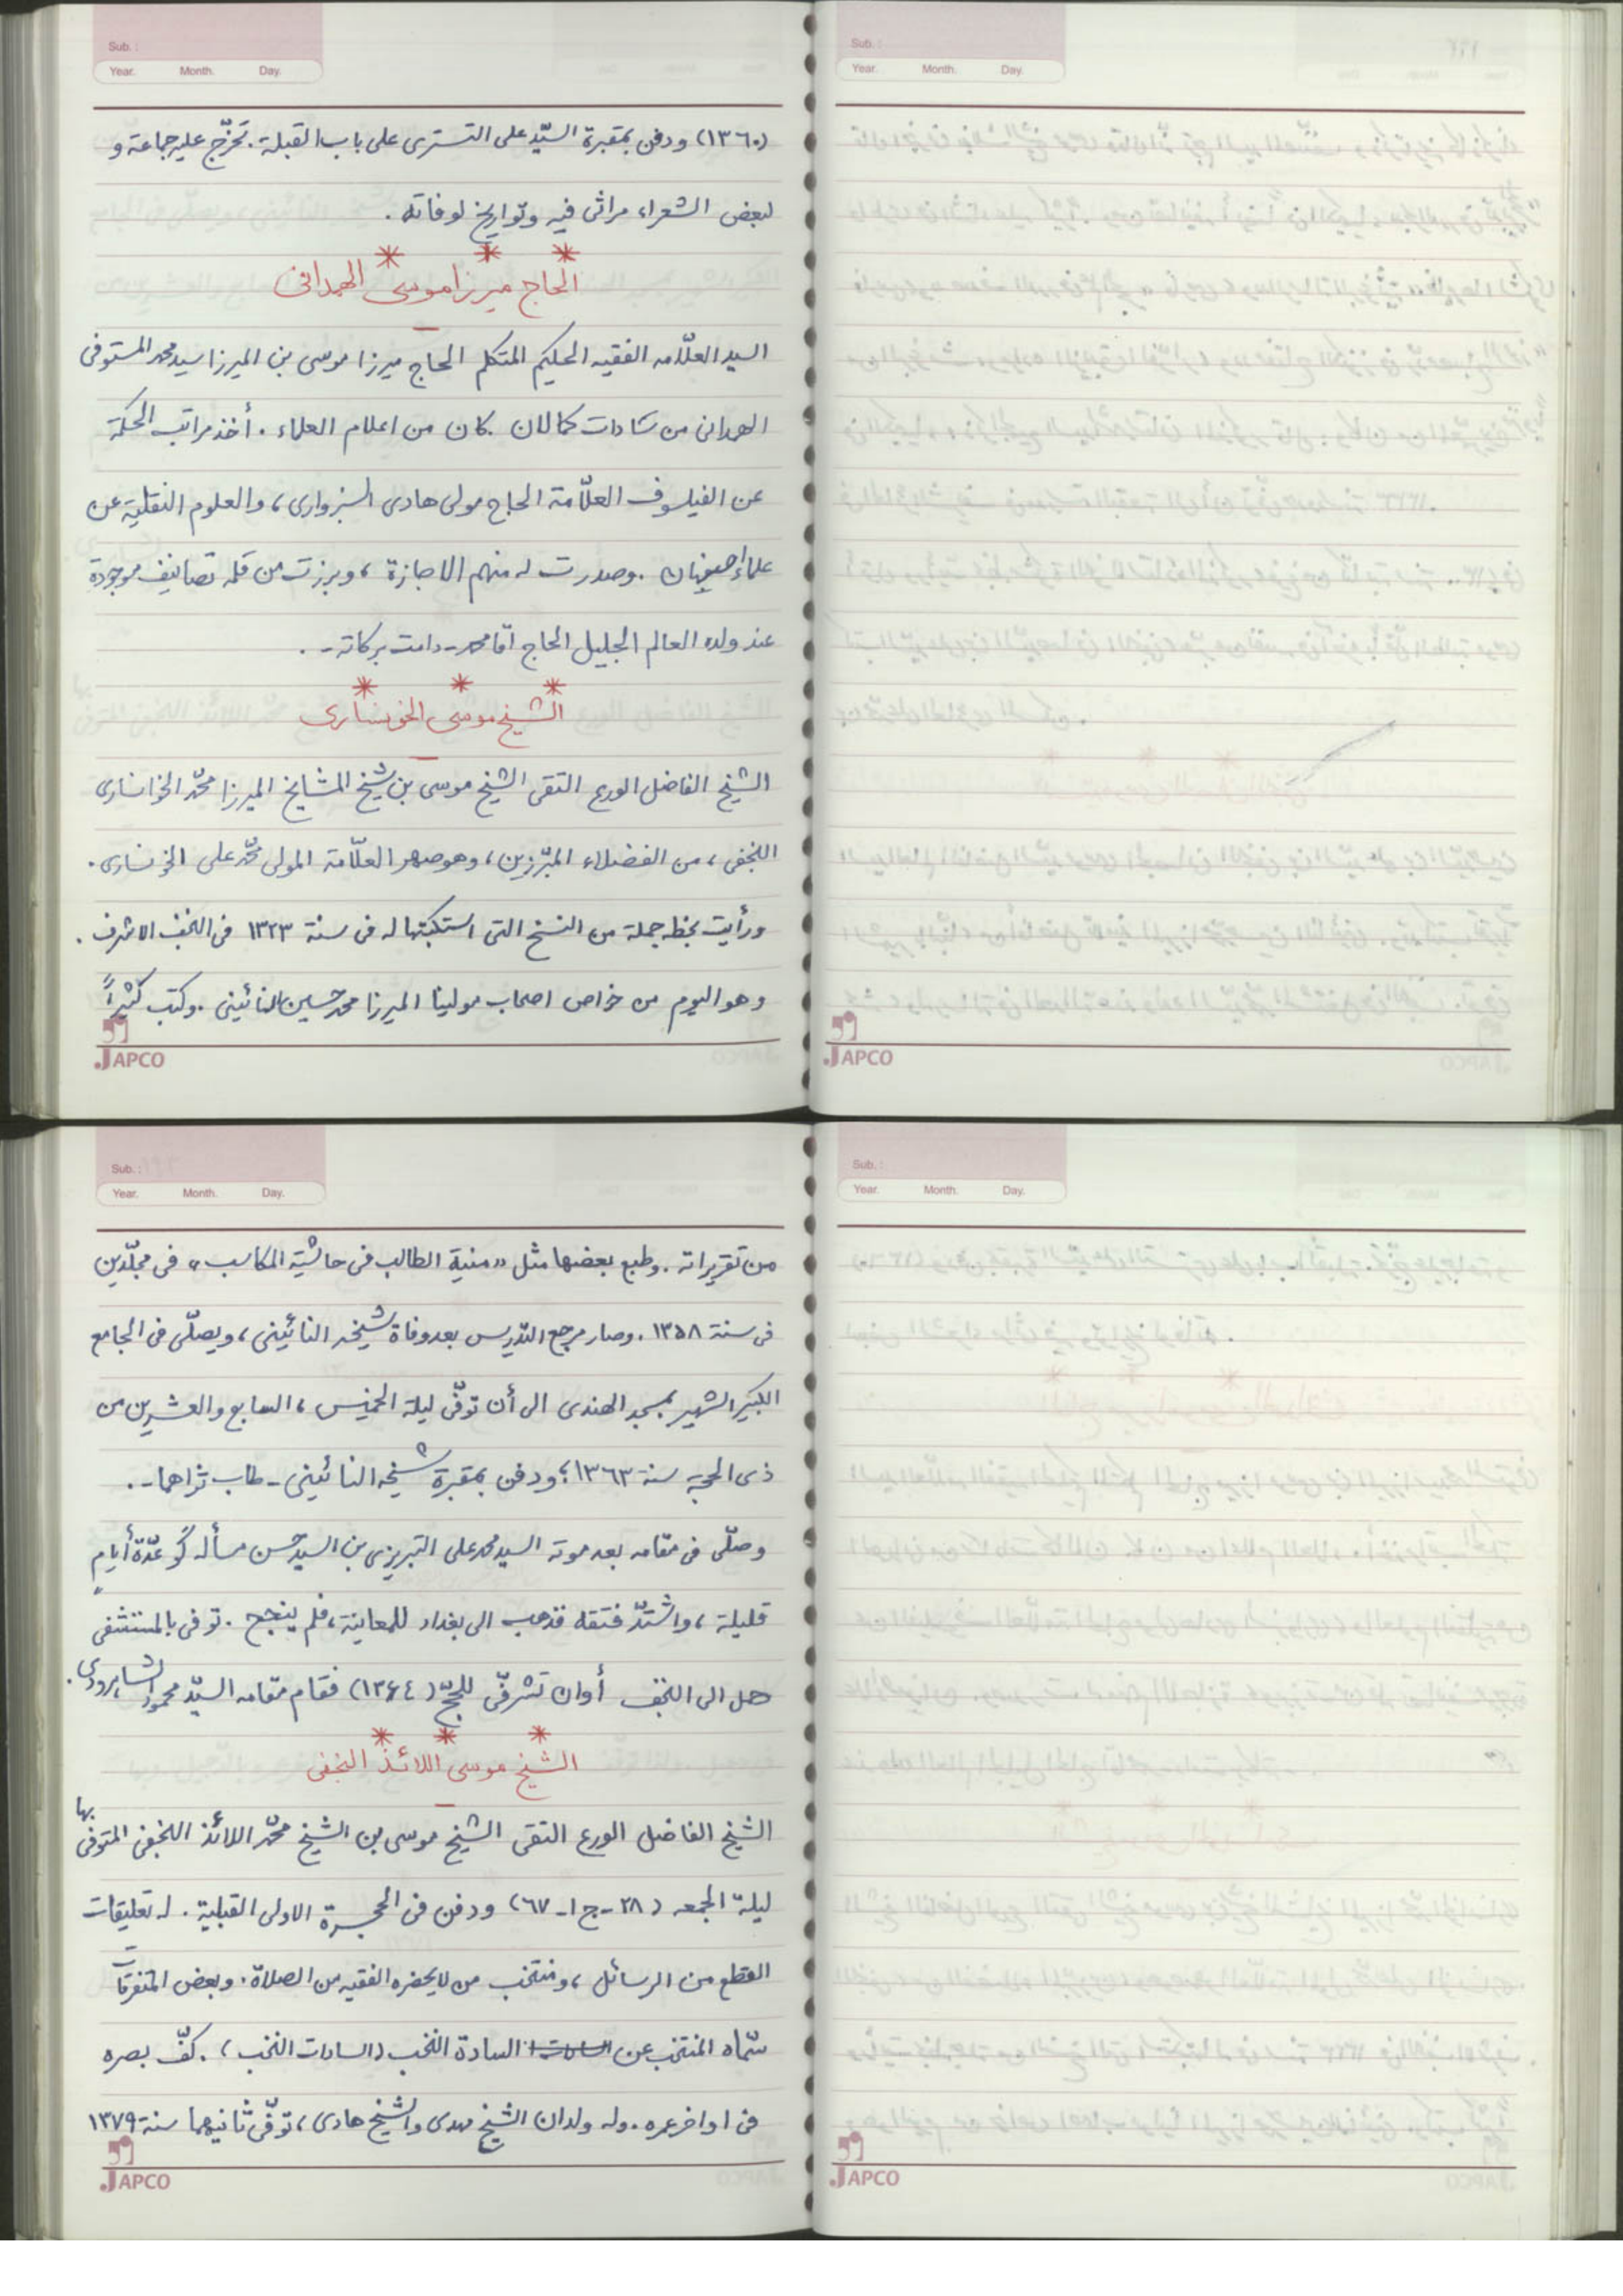 Sub. :
Year. Month. Day.
(۱۳۶۰) ودفن بمقبرة السيّد على التسترى على باب القبلة. تخرّج عليه جماعة و
لبعض الشعراء مراثى فيه وتواريخ لوفاته .
* * *
الحاج ميرزا موسى الهمدانى
السيد العلّامه الفقيه الحكيم المتكلم الحاج ميرزا موسى بن الميرزا سيد محمد المستوفى
الهمدانى من سادات كمالان. كان من اعلام العلماء . أخذ مراتب الحكمة
عن الفيلسوف العلّامة الحاج مولى هادى السبزوارى، والعلوم النقلية عن
علماء اصفهان . وصدرت له منهم الاجازة ، وبرزت من قلمه تصانيف موجودة
عند ولده العالم الجليل الحاج آقا محمد - دامت بركاته - .
* * *
الشيخ موسى الخونسارى
الشيخ الفاضل الورع التقى الشيخ موسى بن شيخ المشايخ الميرزا محمّد الخوانسارى
النجفى، من الفضلاء المبّرزين، وهو صهر العلّامة المولى محمّد على الخونسارى .
ورأيت بخطه جملة من النسخ التى استكتبتها له فى سنة ۱۳۲۳ فى النجف الاشرف .
وهو اليوم من خواص اصحاب مولينا الميرزا محمد حسين النائينى . وكتب كثيراً
JAPCO
Sub. :
Year. Month. Day.
JAPCO
Sub. :
Year. Month. Day.
من تقريراته . وطبع بعضها مثل «منية الطالب فى حاشية المكاسب» فى مجلّدين
فى سنة ۱۳۵۸ . وصار مرجع التدريس بعد وفاة شيخه النائينى ، ويصلّى فى الجامع
الكبير الشهير بمسجد الهندى الى أن توفّى ليلة الخميس ، السابع والعشرين من
ذى الحجة سنة ۱۳۶۳؛ ودفن بمقبرة شيخه النائينى - طاب ثراهما - .
وصلّى فى مقامه بعد موته السيد محمد على التبريزى بن السيد حسن مسأله گو عدّة أيام
قليلة ، واشتدّ فتقه فذهب الى بغداد للمعاينة ، فلم ينجح . توفى بالمستشفى
حمل الى النجف أوان تشرفى للحجّ (۱۳۶٤) فقام مقامه السيّد محمود الشاهرودى .
* * *
الشيخ موسى اللائذ النجفى
الشيخ الفاضل الورع التقى الشيخ موسى بن الشيخ محمّد اللائذ النجفى المتوفى بها
ليلة الجمعه (۲۸ - ج ۱ - ٦۷) ودفن فى الحجرة الاولى القبلية . له تعليقات
القطع من الرسائل ، ومنتخب من لايحضره الفقيه من الصلاة . وبعض المتفرقات
سمّاه المنتخب عن السادة النخب (السادات النخب) . كفّ بصره
فى اواخر عمره . وله ولدان الشيخ مهدى والشيخ هادى ، توفّى ثانيهما سنة ۱۳۷۹
JAPCO
Sub. :
Year. Month. Day.
JAPCO